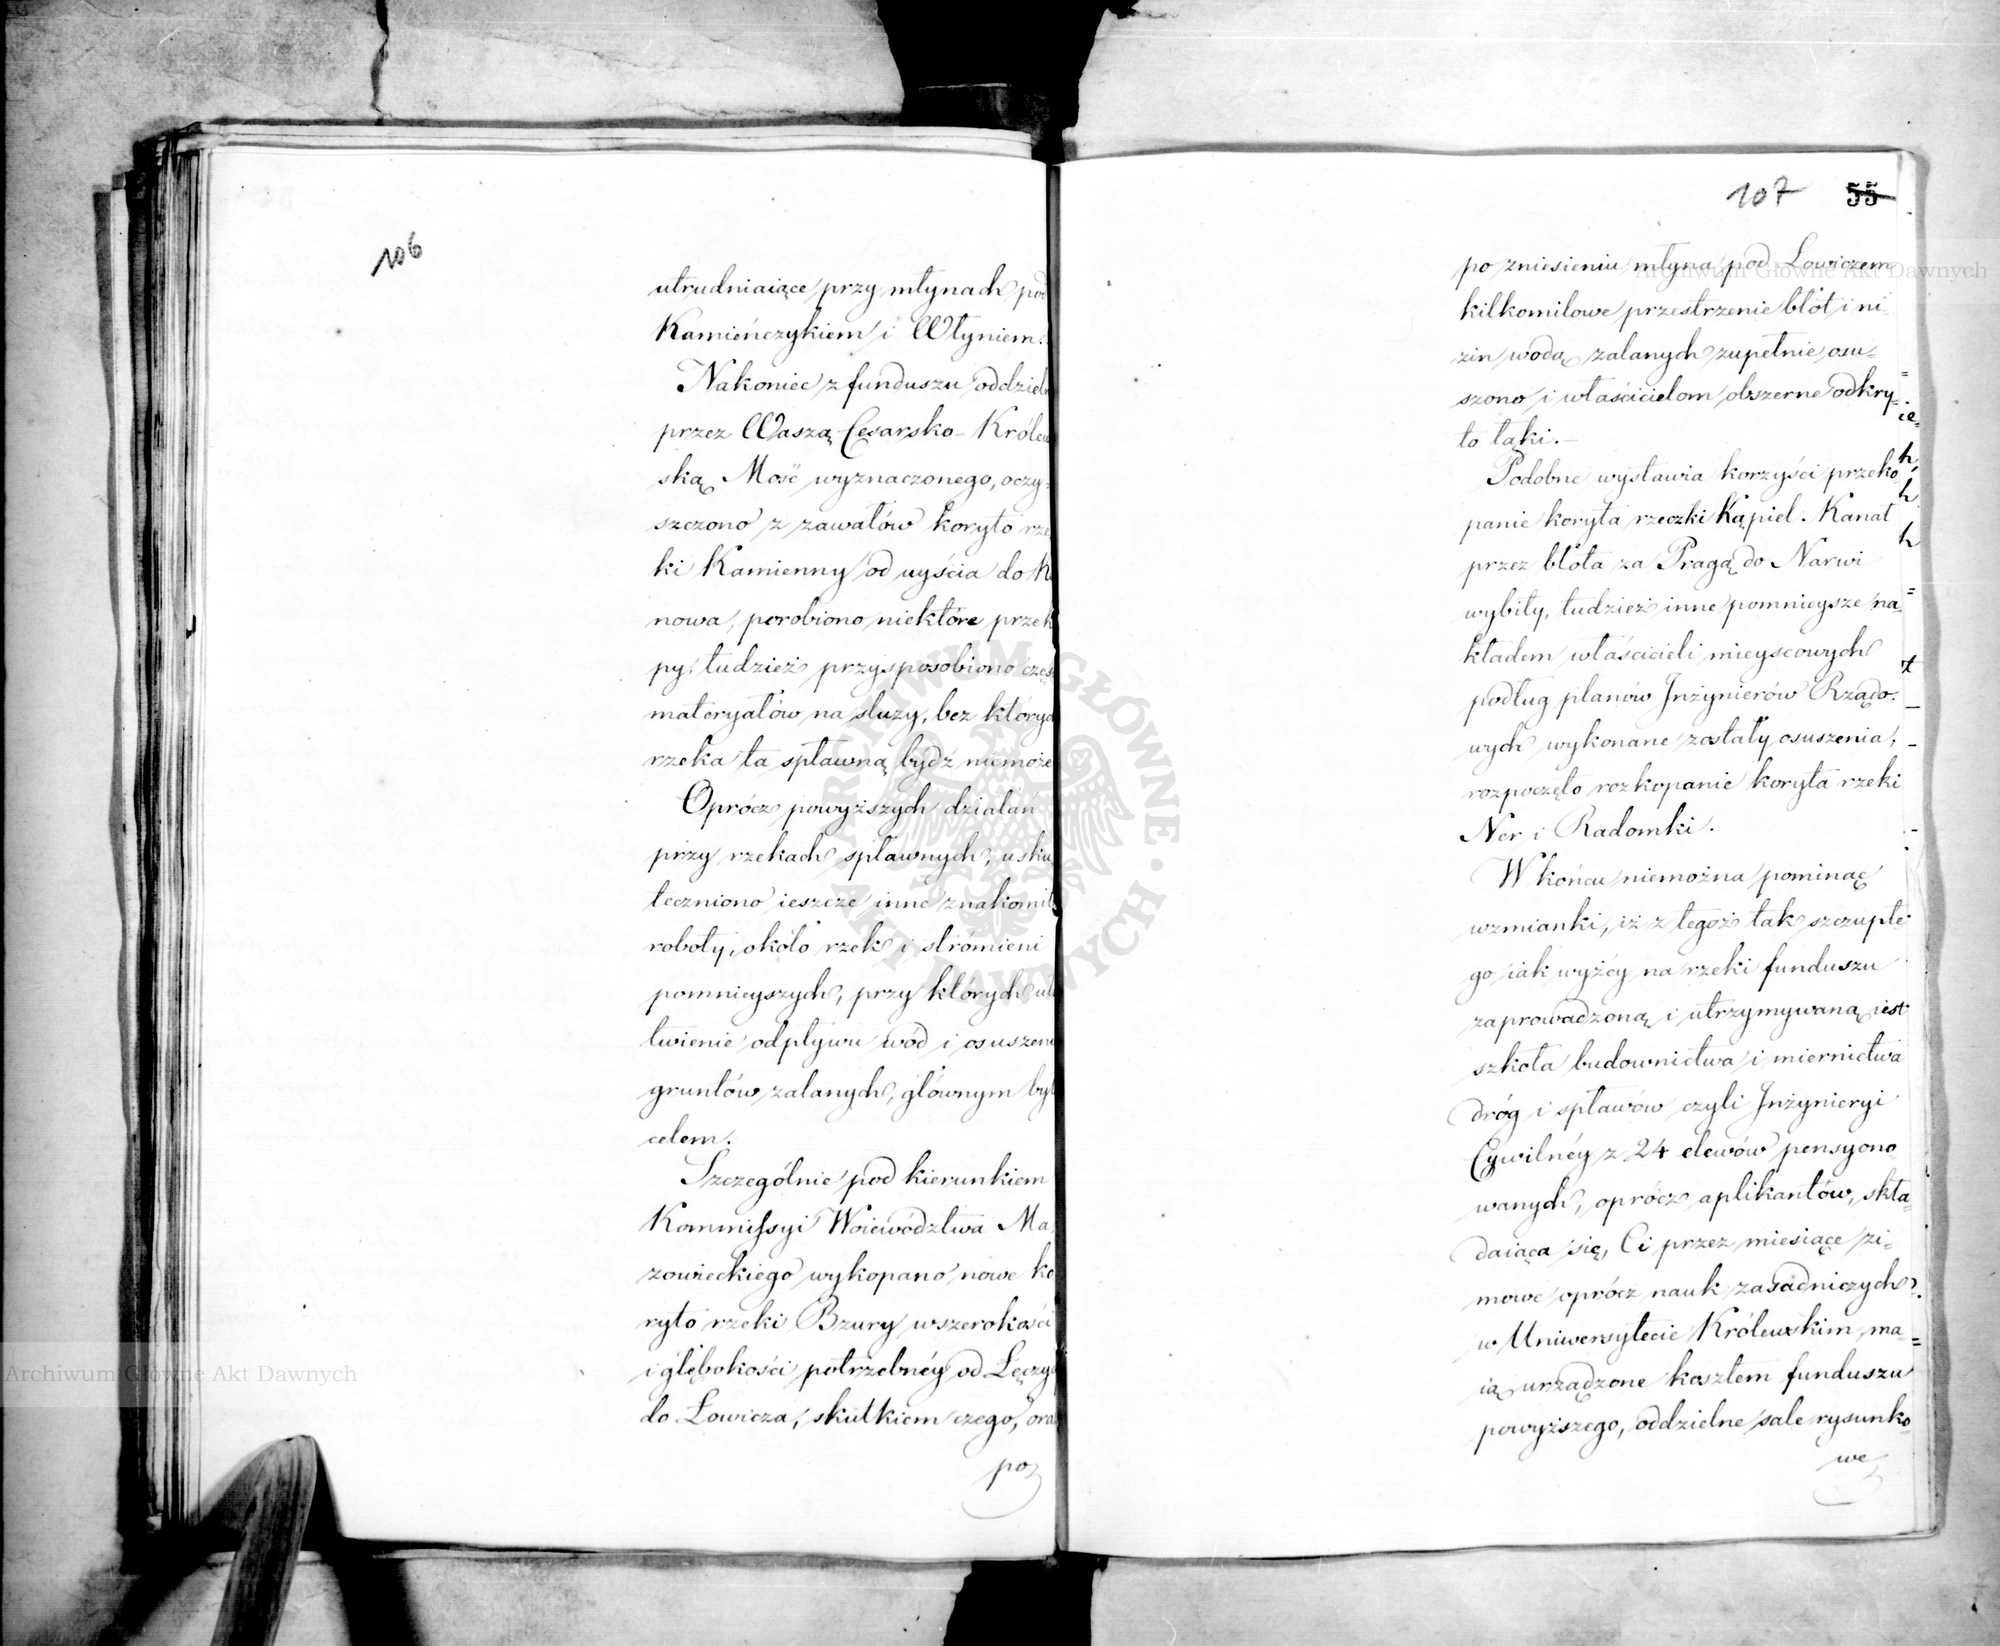 106
utrudniaiące przy młynach pod
Kamieńczykiem i Włyniem.
Nakoniec z funduszu oddziel
przez Waszą Cesarsko-Królew
ską Mość wyznaczonego, oczy-
szczono z zawałów koryto rze
ki Kamienny od uyścia do K
nowa, porobiono niektóre przek
py, tudzież przysposobiono częś
materyałów na sluzy, bez któryc
rzeka ta spławną bydź niemoże
Oprócz powyższych działań
przy rzekach spławnych, usku
teczniono ieszcze inne znakomit
roboty, około rzek i strómieni
pomnieyszych, przy których uła
twienie odpływu wód i osuszeni
gruntów zalanych, głównym był
celem.
Szczególnie pod kierunkiem
Kommissyi Woiewództwa Ma
zowieckiego wykopano nowe ko
ryto rzeki Bzury w szerokości
i głębokości potrzebnéy od Łęczy
do Łowicza, skutkiem czego, ora
po
107 55
po zniesieniu młyna pod Lowiczem
kilkomilowe przestrzenie błót i ni-
zin wodą zalanych zupełnie osu-
szono i właścicielom obszerne odkry-
to łąki.-
Podobne wystawia korzyści przeko
panie koryta rzeczki Kąpiel. Kanał
przez błota za Pragą do Narwi
wybity, tudzież inne pomnieysze na
kładem właścicieli mieyscowych
podług planów Inżynierów Rządo-
wych wykonane zostały osuszenia;
rozpoczęto rozkopanie koryta rzeki
Ner i Radomki.
W końcu niemożna pominąć
wzmianki, iż z tegoż tak szczupłe-
go iak wyżéy na rzeki funduszu
zaprowadzoną i utrzymywaną iest
szkoła budownictwa i miernictwa
dróg i spławów czyli Inżynieryi
Cywilnéy z 24 elewów pensyono-
wanych, oprócz aplikantów, skła-
daiąca się, Ci przez miesiące zi-
mowe oprócz nauk zasadniczych
w Uniwersytecie Królewskim, ma-
ią urządzone kosztem funduszu
powyższego, oddzielne sale rysunko
we
Archiwum Główne Akt Dawnych
Archiwum Główne Akt Dawnych
ARCHIWUM GŁÓWNE AKT DAWNYCH